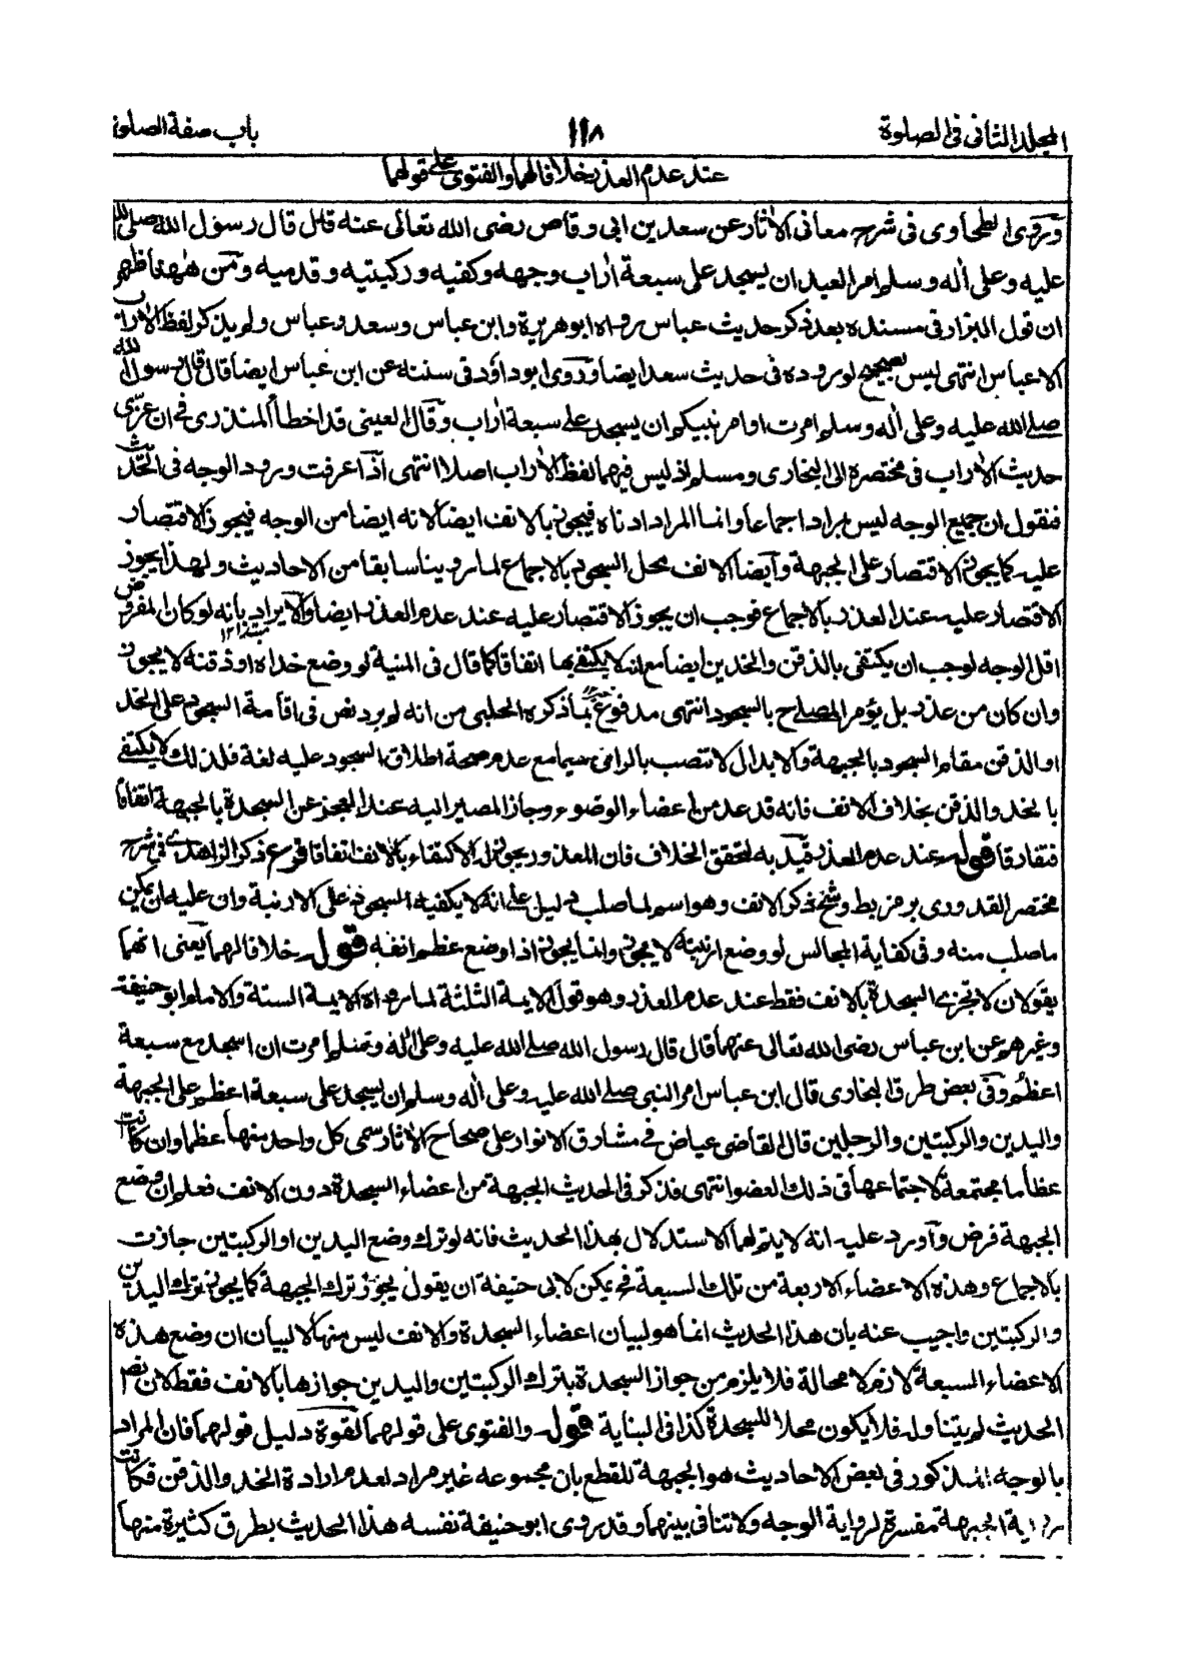 المجلد الثانى فى الصلوة ١١٨ باب صفة الصلوة
عند عدم العذر خلافا لهما والفتوى على قولهما
وروى الطحاوى فى شرح معانى الاثار عن سعد بن ابى وقاص رضى الله تعالى عنه قال قال رسول الله صلى الله
عليه وعلى اله وسلم امر العبد ان يسجد على سبعة اراب وجهه وكفيه وركبتيه وقدميه ومن ههنا ظهر
ان قول البزار فى مسنده بعد ذكر حديث عباس رواه ابوهريرة وابن عباس وسعد وعباس ولم يذكر لفظ الاراب
الا عباس انتهى ليس بصحيح لوروده فى حديث سعد ايضا وروى ابوداؤد فى سننه عن ابن عباس ايضا قال قال رسول الله
صلے الله عليه وعلى اله وسلم امرت او امر نبيكم ان يسجد علے سبعة اراب وقال العينى قد اخطأ المنذرى فے ان عزى
حديث الاراب فى مختصره الى البخارى ومسلم اذ ليس فيهما لفظ الاراب اصلا انتهى اذا عرفت ورود الوجه فى الحديث
فنقول ان جميع الوجه ليس بمراد اجماعا وانما المراد ادناه فيجوز بالانف ايضا لانه ايضا من الوجه فيجوز الاقتصار
عليه كما يجوز الاقتصار على الجبهة وايضا الانف محل السجود بالاجماع لما روينا سابقا من الاحاديث ولهذا يجوز
الاقتصار عليه عند العذر بالاجماع فوجب ان يجوز الاقتصار عليه عند عدم العذر ايضا والايراد بانه لو كان المفروض
اقل الوجه لوجب ان يكتفى بالذقن والخدين ايضا مع انه لا يكتفے بها اتفاقا كما قال فى المنية لو وضع خداه او ذقنه لا يجوز
وان كان من عذر بل يؤمر المصلے بالسجود انتهى مدفوع بما ذكره الحلبى من انه لم يرد نص فى اقامة السجود على الخد
او الذقن مقام السجود بالجبهة والابدال لا تنتصب بالراى سيما مع عدم صحة اطلاق السجود عليه لغة فلذلك لا يكتفے
بالخد والذقن بخلاف الانف فانه قد عد من اعضاء الوضوء وجاز المصير اليه عند العجز عن السجدة بالجبهة اتفاقا
فتفارقا قوله عند عدم العذر قيد به لتحقق الخلاف فان المعذور يجوز له الاكتفاء بالانف اتفاقا فرع ذكر الزاهدے فى شرح
مختصر القدورى برمز بط وشخ ذكر الانف وهو اسم لما صلب دليل علے انه لا يكفيه السجود على الارنبة وان عليه ان يمكن
ما صلب منه وفى كفاية المجالس لو وضع ارنبته لا يجوز وانما يجوز اذا وضع عظم انفه قوله خلافا لهما يعنى انهما
يقولان لا تجزى السجدة بالانف فقط عند عدم العذر وهو قول الايمة الثلثة لما رواه الايمة الستة والامام ابو حنيفة
وغيرهم عن ابن عباس رضى الله تعالى عنهما قال قال رسول الله صلے الله عليه وعلى اله وسلم امرت ان اسجد مع سبعة
اعظم وفى بعض طرق البخارى قال ابن عباس امر النبى صلے الله عليه وعلى اله وسلم ان يسجد على سبعة اعظم على الجبهة
واليدين والركبتين والرجلين قال القاضى عياض فے مشارق الانوار على صحاح الاثار سمى كل واحد منها عظما وان كانت
عظاما مجتمعة لاجتماعها فى ذلك العضو انتهى فذكر فى الحديث الجبهة من اعضاء السجدة دون الانف فعلم ان وضع
الجبهة فرض واورد عليه انه لا يتم لهما الاستدلال بهذا الحديث فانه لو ترك وضع اليدين او الركبتين جازت
بالاجماع وهذه الاعضاء الاربعة من تلك السبعة فح يمكن لابى حنيفة ان يقول يجوز ترك الجبهة كما يجوز ترك اليدين
والركبتين واجيب عنه بان هذا الحديث انما هو لبيان اعضاء السجدة والانف ليس منها لا لبيان ان وضع هذه
الاعضاء السبعة لازم لا محالة فلا يلزم من جواز السجدة بترك الركبتين واليدين جوازها بالانف فقط لان نص
الحديث لم يتناوله فلا يكون محلا للسجدة كذا فى البناية قوله والفتوى على قولهما لقوة دليل قولهما فان المراد
بالوجه المذكور فى بعض الاحاديث هو الجبهة للقطع بان مجموعه غير مراد لعدم ارادة الخد والذقن فكانت
رواية الجبهة مفسرة لرواية الوجه ولا تنافى بينهما وقد روى ابو حنيفة نفسه هذا الحديث بطرق كثيرة منها